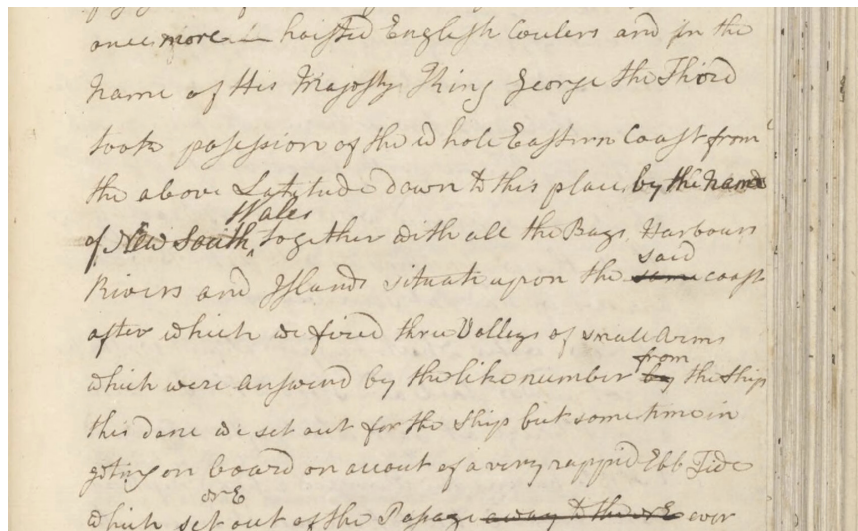 once more hoisted English Coulers and in the
Name of His Majesty King George the Third
took posession of the whole Eastern Coast from
the above Latitude down to this place by the name
of New South Wales together with all the Bays, Harbours
Rivers and Islands situate upon the same said coast
after which we fired three Volleys of small Arms
which were Answerd by the like number by from the Ship
this done we set out for the Ship but some time in
geting on board on accout of a very rappid Ebb Tide
which set NE out of the Pasage away to the NE ever